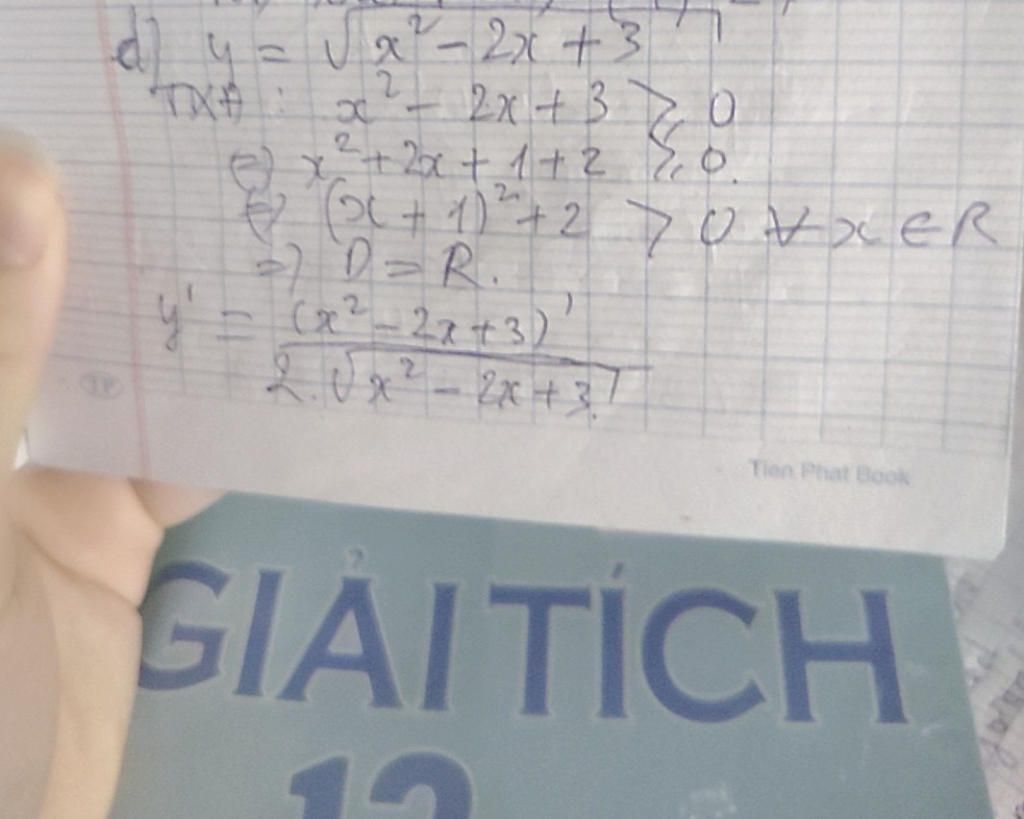 d) y = √x² - 2x + 3
TXĐ : x² - 2x + 3 ⩾ 0
⇔ x² + 2x + 1 + 2 ⩾ 0.
⇔ (x + 1)² + 2 > 0 ∀ x ∈ R
⇒ D = R.
y' = (x² - 2x + 3)'
2. √x² - 2x + 3.
TP
Tien Phat Book
GIẢI TÍCH
12